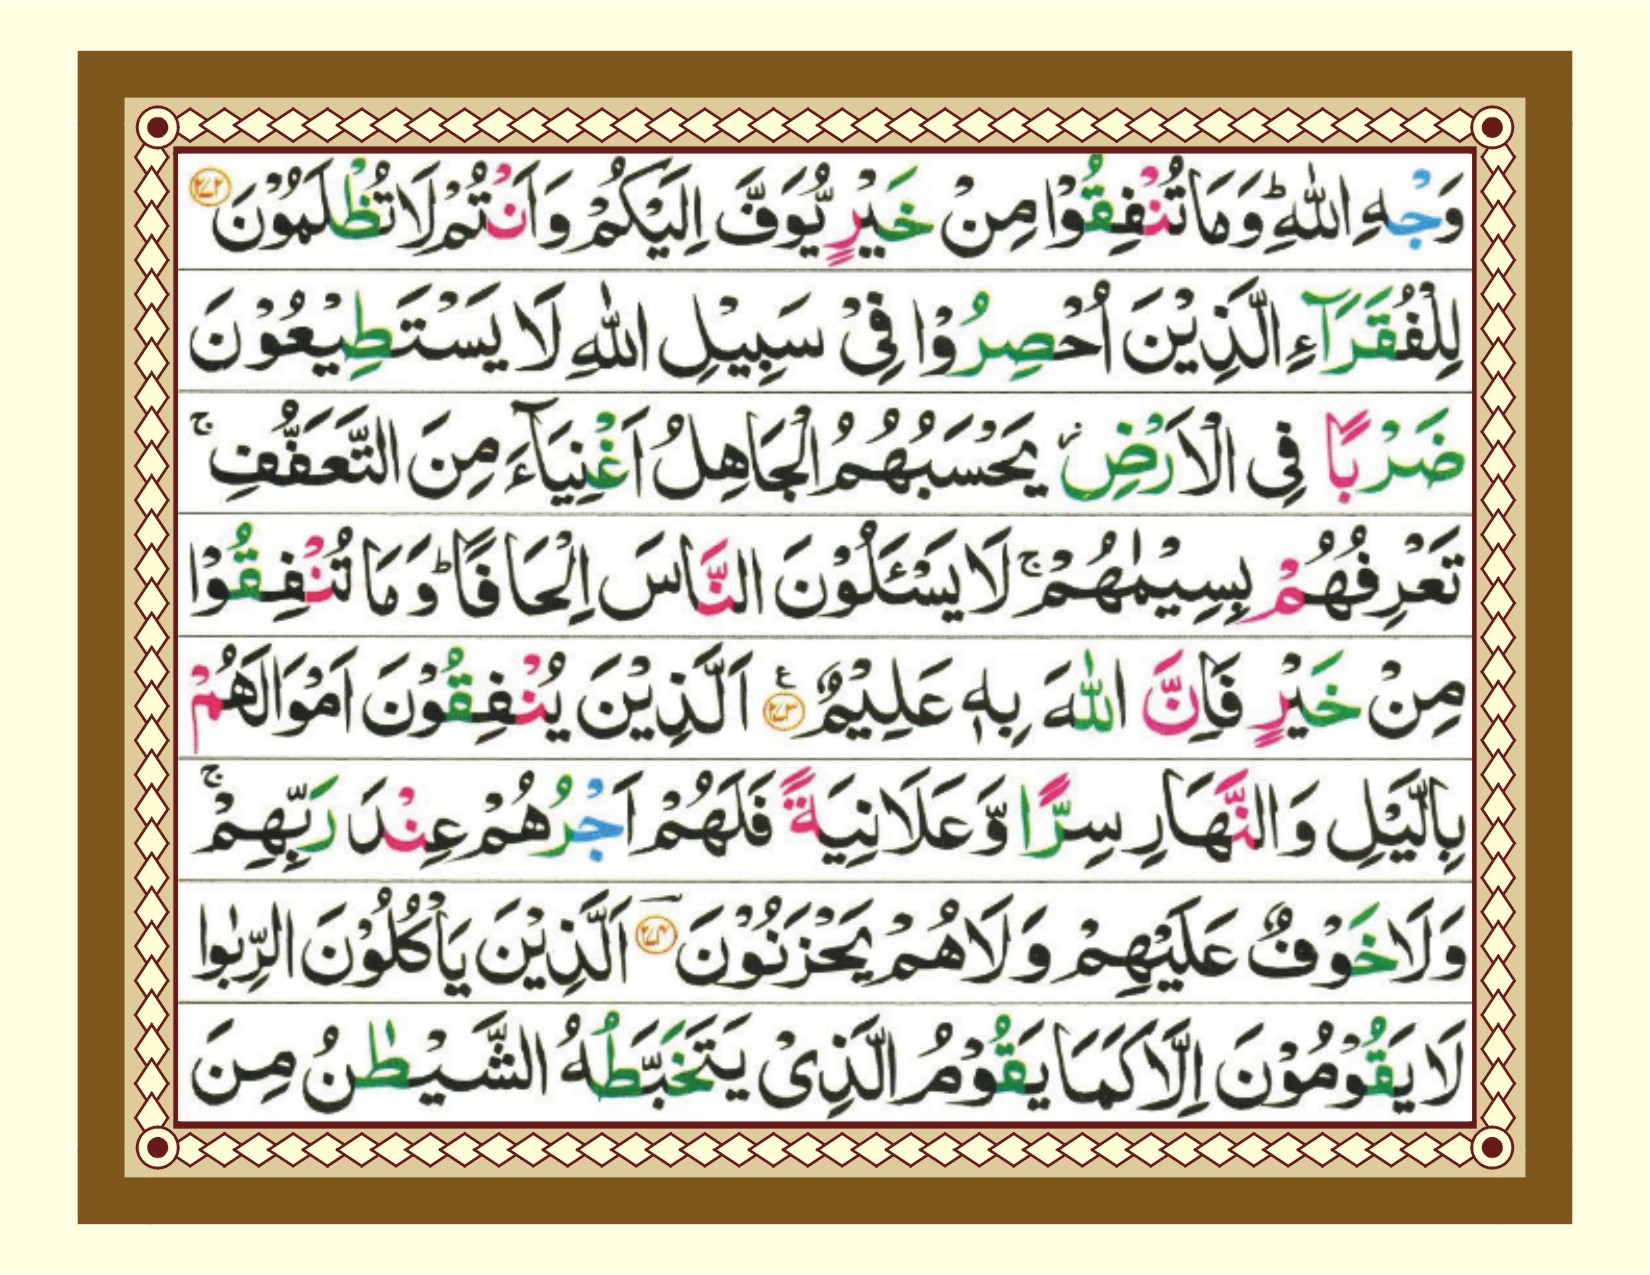 وَجْهِ اللّٰهِ ؕ وَمَا تُنْفِقُوْا مِنْ خَيْرٍ يُّوَفَّ اِلَيْكُمْ وَاَنْتُمْ لَا تُظْلَمُوْنَ ﴿۲۷۲﴾
لِلْفُقَرَآءِ الَّذِيْنَ اُحْصِرُوْا فِيْ سَبِيْلِ اللّٰهِ لَا يَسْتَطِيْعُوْنَ
ضَرْبًا فِى الْاَرْضِ ؗ يَحْسَبُهُمُ الْجَاهِلُ اَغْنِيَآءَ مِنَ التَّعَفُّفِ ۚ
تَعْرِفُهُمْ بِسِيْمٰهُمْ ۚ لَا يَسْـَٔلُوْنَ النَّاسَ اِلْحَافًا ؕ وَمَا تُنْفِقُوْا
مِنْ خَيْرٍ فَاِنَّ اللّٰهَ بِهٖ عَلِيْمٌ ﴿۲۷۳﴾ ع اَلَّذِيْنَ يُنْفِقُوْنَ اَمْوَالَهُمْ
بِالَّيْلِ وَالنَّهَارِ سِرًّا وَّعَلَانِيَةً فَلَهُمْ اَجْرُهُمْ عِنْدَ رَبِّهِمْ ۚ
وَلَا خَوْفٌ عَلَيْهِمْ وَلَا هُمْ يَحْزَنُوْنَ ﴿۲۷۴﴾ اَلَّذِيْنَ يَاْكُلُوْنَ الرِّبٰوا
لَا يَقُوْمُوْنَ اِلَّا كَمَا يَقُوْمُ الَّذِيْ يَتَخَبَّطُهُ الشَّيْطٰنُ مِنَ